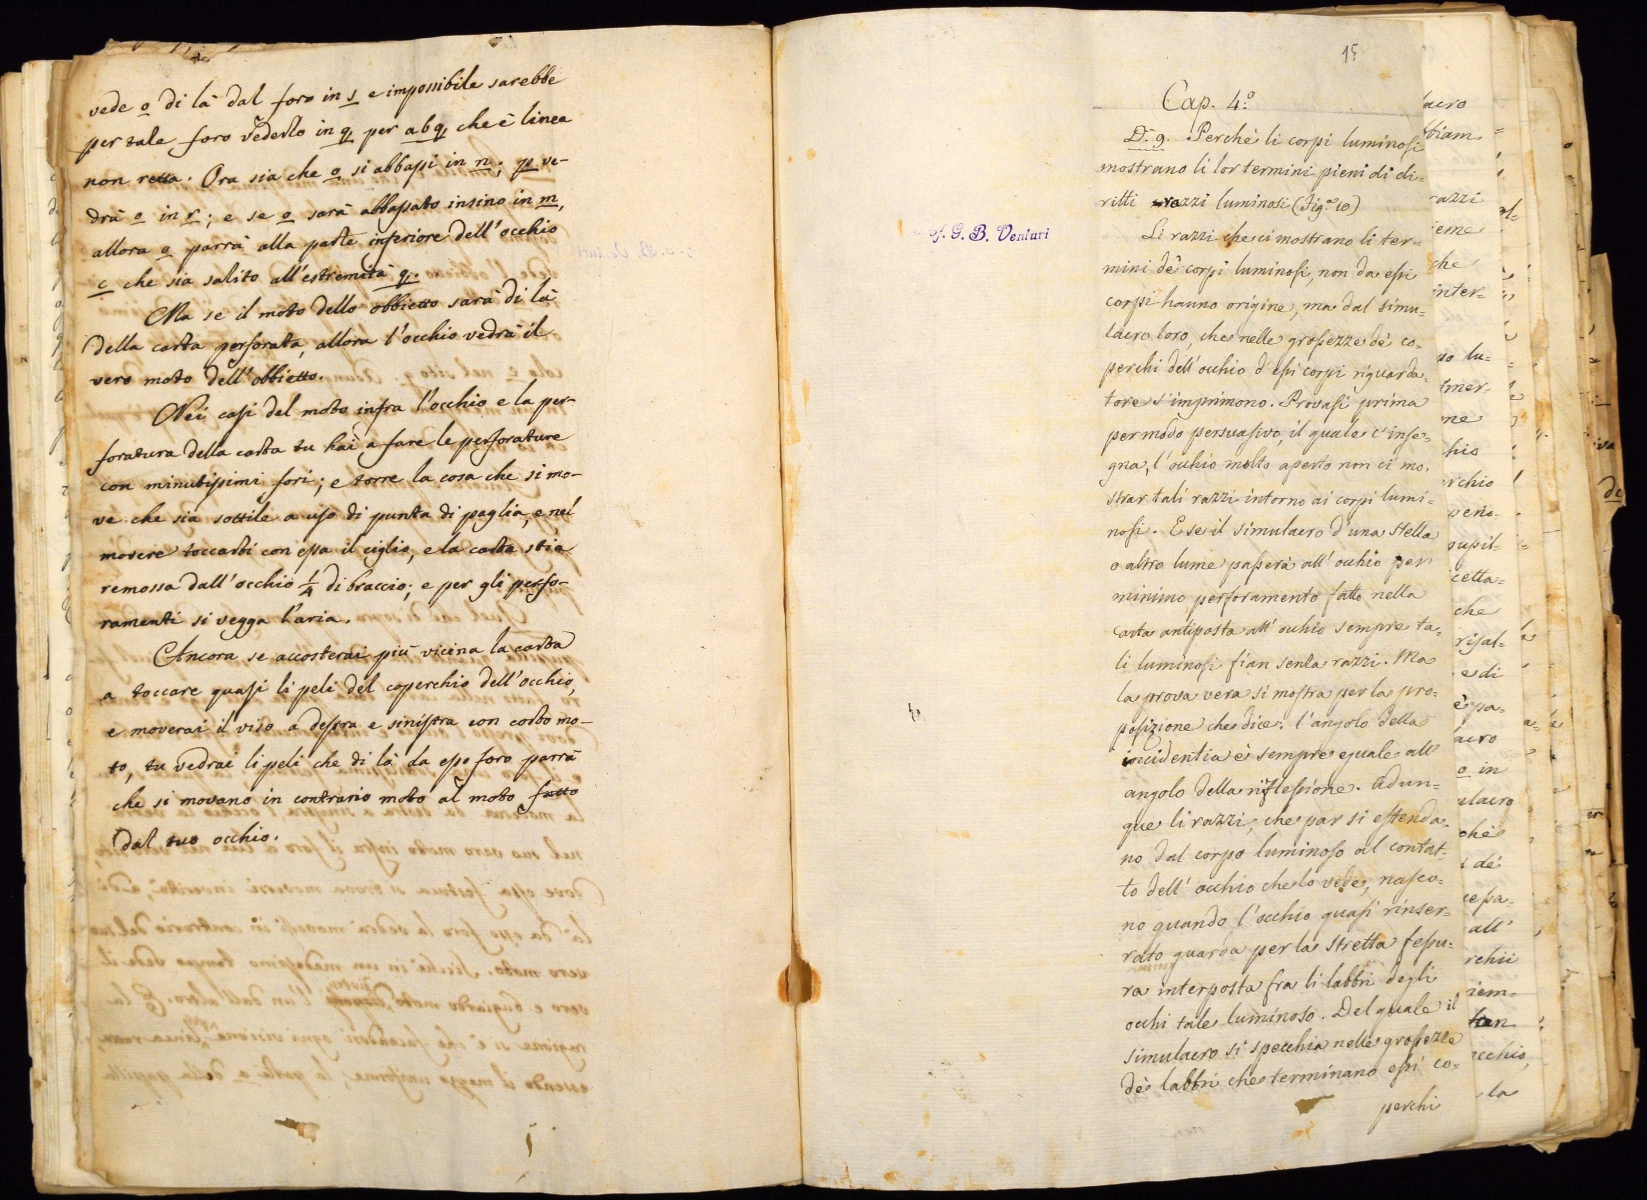 vede o di là dal foro in s e impossibile sarebbe
per tale foro vederlo in q per a b q che è linea
non retta. Ora sia che o si abbassi in n; p ve-
drà o in r; e se o sarà abbassato insino in m,
allora o parrà alla parte inferiore dell'occhio
c che sia salito all'estremità q.
Ma se il moto dello obbietto sarà di là
della carta perforata, allora l'occhio vedrà il
vero moto dell'obbietto.
Nei casi del moto infra l'occhio e la per-
foratura della carta tu hai a fare le perforature
con minutissimi fori; e torre la cosa che si mo-
ve che sia sottile a uso di punta di paglia, e nel
movere toccarti con essa il ciglio, e la carta stia
remossa dall'occhio 1/4 di braccio; e per gli perfo-
ramenti si vegga l'aria.
Ancora se accosterai più vicina la carta
a toccare quasi li peli del coperchio dell'occhio,
e moverai il viso a destra e sinistra con corto mo-
to, tu vedrai li peli che di là da esso foro parrà
che si movano in contrario moto al moto fatto
dal tuo occhio.
15
Cap. 4.º
D. 9. Perchè li corpi luminosi
mostrano li lor termini pieni di di=
ritti razzi luminosi (Fig.ª 10)
Prof. G. B. Venturi
Li razzi che ci mostrano li ter=
mini de' corpi luminosi, non da essi
corpi hanno origine, ma dal simu=
lacro loro, che nelle grossezze de' co=
perchi dell'occhio d'essi corpi riguarda=
tore s'imprimono. Provasi prima
per modo persuasivo, il quale c'inse=
gna, l'occhio molto aperto non ci mo=
strar tali razzi intorno ai corpi lumi=
nosi. E se il simulacro d'una stella
o altro lume passerà all'occhio per
minimo perforamento fatto nella
carta antiposta all'occhio sempre ta=
li luminosi fian senza razzi. Ma
la prova vera si mostra per la pro=
posizione che dice: l'angolo della
incidentia è sempre equale all'
angolo della riflessione. Adun=
que li razzi, che par si estenda=
no dal corpo luminoso al contat=
to dell'occhio che lo vede, nasco=
no quando l'occhio quasi rinser=
rato guarda per la stretta fessu=
ra interposta fra li labbri degli
occhi tale luminoso. Del quale il
simulacro si specchia nelle grossezze
de' labbri che terminano essi co=
perchi